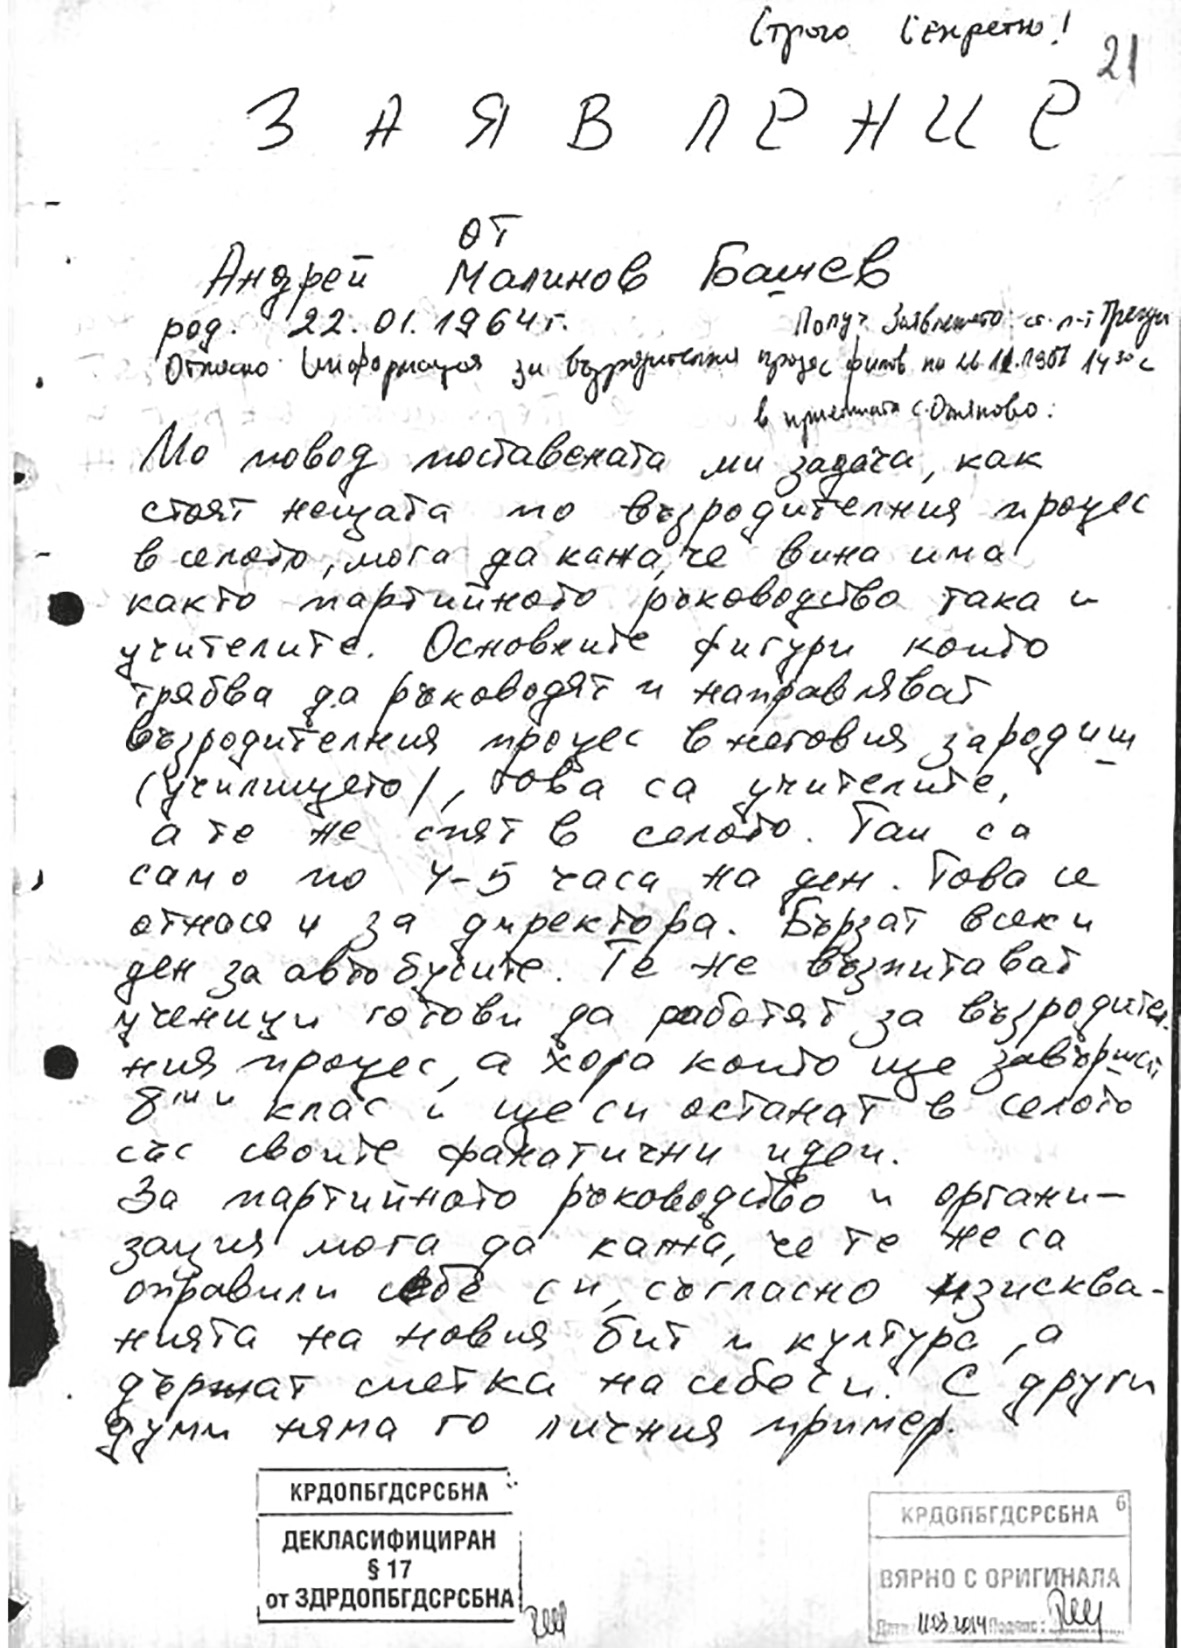 Строго Секретно!
21
ЗАЯВЛЕНИЕ
от
Андрей Малинов Башев
род. 22.01.1964 г.
Получ Заявлението: ст. л-т
Относно: Информация за възродителния процес 14 30 с
в с. Осиково:
По повод поставената ми задача, как
стоят нещата по възродителния процес
в селото, мога да кажа, че вина има
както партийното ръководство така и
учителите. Основните фигури които
трябва да ръководят и направляват
възродителния процес в неговия зародиш
(училището), това са учителите,
а те не спят в селото. Там са
само по 4-5 часа на ден. Това се
отнася и за директора. Бързат всеки
ден за автобусите. Те не възпитават
ученици готови да работят за възродител-
ния процес, а хора които ще завършат
8ми клас и ще си останат в селото
със своите фанатични идеи.
За партийното ръководство и органи-
зация мога да кажа, че те не са
оправили себе си, съгласно изисква-
нията на новия бит и култура, а
държат сметка на себе си. С други
думи няма го личния пример.
КРДОПБГДСРСБНА
ДЕКЛАСИФИЦИРАН
§ 17
от ЗДРДОПБГДСРСБНА
КРДОПБГДСРСБНА 6
ВЯРНО С ОРИГИНАЛА
Дата: 11.03.2014 Подпис: